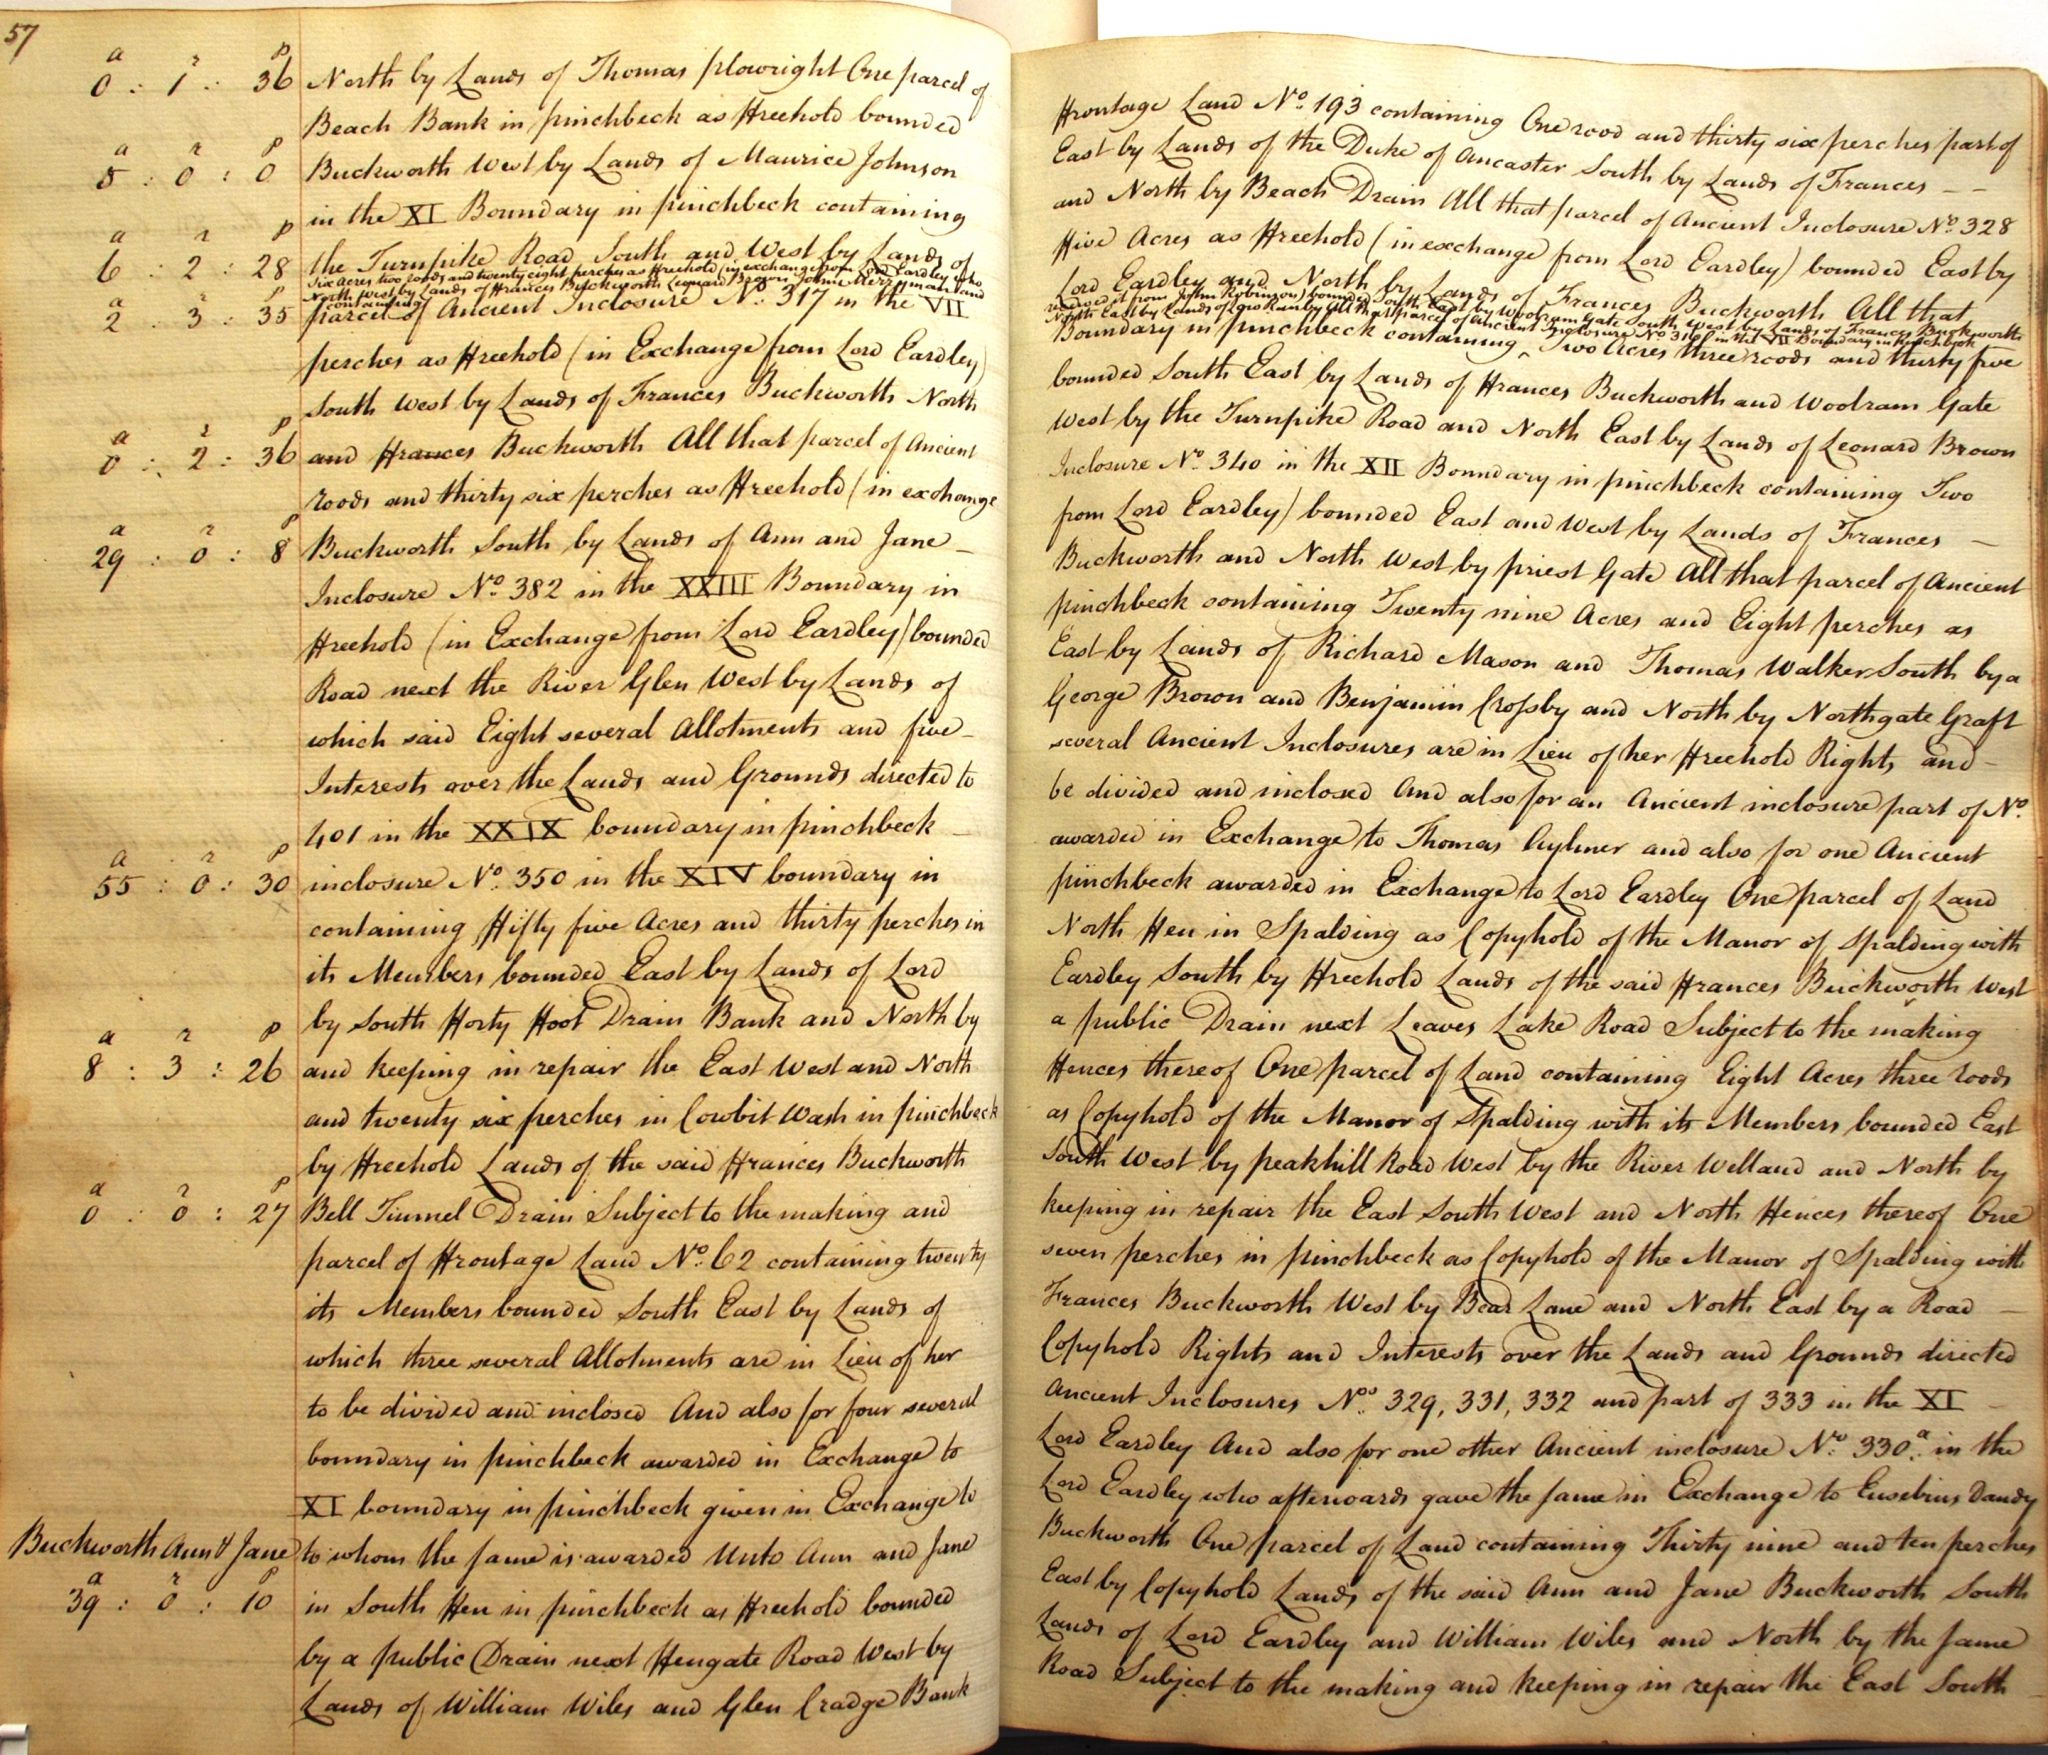 57
a r p
0 : 1 : 36 North by Lands of Thomas plowright One parcel of Frontage Land No. 193 containing One rood and thirty six perches part of
Beach Bank in pinchbeck as Freehold bounded East by Lands of the Duke of Ancaster South by Lands of Frances –
a r p
5 : 0 : 0 Buckworth West by Lands of Maurice Johnson and North by Beach Drain All that parcel of Ancient Inclosure No. 328
in the XI Boundary in pinchbeck containing Five Acres as Freehold (in exchange from Lord Eardley) bounded East by
a r p
6 : 2 : 28 the Turnpike Road South and West by Lands of Lord Eardley and North by Lands of Frances Buckworth All that
Six acres two roods and twenty eight perches as Freehold (in exchange from Lord Eardley who received it from John Robinson) bounded South East by Woolram Gate South West by Lands of Frances Buckworth
North West by Lands of Frances Buckworth Leonard Brown John Merryman and North East by Lands of Geo Ranby All that parcel of Ancient Inclosure No. 316 in the VII Boundary in pinchbeck
containing
a r p
2 : 3 : 35 parcel of Ancient Inclosure No. 317 in the VII Boundary in pinchbeck containing Two Acres three roods and thirty five
perches as Freehold (in Exchange from Lord Eardley) bounded South East by Lands of Frances Buckworth and Woolram Gate
South West by Lands of Frances Buckworth North West by the Turnpike Road and North East by Lands of Leonard Brown
a r p
0 : 2 : 36 and Frances Buckworth All that parcel of Ancient Inclosure No. 340 in the XII Boundary in pinchbeck containing Two
roods and thirty six perches as Freehold (in exchange from Lord Eardley) bounded East and West by Lands of Frances –
a r p
29 : 0 : 8 Buckworth South by Lands of Ann and Jane – Buckworth and North West by priest Gate All that parcel of Ancient
Inclosure No. 382 in the XXIII Boundary in pinchbeck containing Twenty nine Acres and Eight perches as
Freehold (in Exchange from Lord Eardley) bounded East by Lands of Richard Mason and Thomas Walker South by a
Road next the River Glen West by Lands of George Brown and Benjamin Crosby and North by Northgate Graft
which said Eight several Allotments and five – several Ancient Inclosures are in Lieu of her Freehold Rights and –
Interests over the Lands and Grounds directed to be divided and inclosed And also for an Ancient inclosure part of No.
401 in the XXIX boundary in pinchbeck – awarded in Exchange to Thomas Aylmer and also for one Ancient
a r p
55 : 0 : 30 inclosure No. 350 in the XIV boundary in pinchbeck awarded in Exchange to Lord Eardley One parcel of Land
containing Fifty five Acres and thirty perches in North Fen in Spalding as Copyhold of the Manor of Spalding with
its Members bounded East by Lands of Lord Eardley South by Freehold Lands of the said Frances Buckworth West
by South Forty Foot Drain Bank and North by a public Drain next Leaves Lake Road Subject to the making
a r p
8 : 3 : 26 and keeping in repair the East West and North Fences thereof One parcel of Land containing Eight Acres three roods
and twenty six perches in Cowbit Wash in pinchbeck as Copyhold of the Manor of Spalding with its Members bounded East
by Freehold Lands of the said Frances Buckworth South West by peakhill Road West by the River Welland and North by
a r p
0 : 0 : 27 Bell Tunnel Drain Subject to the making and keeping in repair the East South West and North Fences thereof One
parcel of Frontage Land No. 62 containing twenty seven perches in pinchbeck as Copyhold of the Manor of Spalding with
its Members bounded South East by Lands of Frances Buckworth West by Bear Lane and North East by a Road –
which three several Allotments are in Lieu of her Copyhold Rights and Interests over the Lands and Grounds directed
to be divided and inclosed And also for four several Ancient Inclosures Nos. 329, 331, 332 and part of 333 in the XI –
boundary in pinchbeck awarded in Exchange to Lord Eardley And also for one other Ancient inclosure No. 330a. in the
XI boundary in pinchbeck given in Exchange to Lord Eardley who afterwards gave the same in Exchange to Eusebius Dandy
Buckworth Ann & Jane to whom the same is awarded Unto Ann and Jane Buckworth One parcel of Land containing Thirty nine and ten perches
a r p
39 : 0 : 10 in South Fen in pinchbeck as Freehold bounded East by Copyhold Lands of the said Ann and Jane Buckworth South
by a public Drain next Fengate Road West by Lands of Lord Eardley and William Wiles and North by the same
Lands of William Wiles and Glen Cradge Bank Road Subject to the making and keeping in repair the East South –